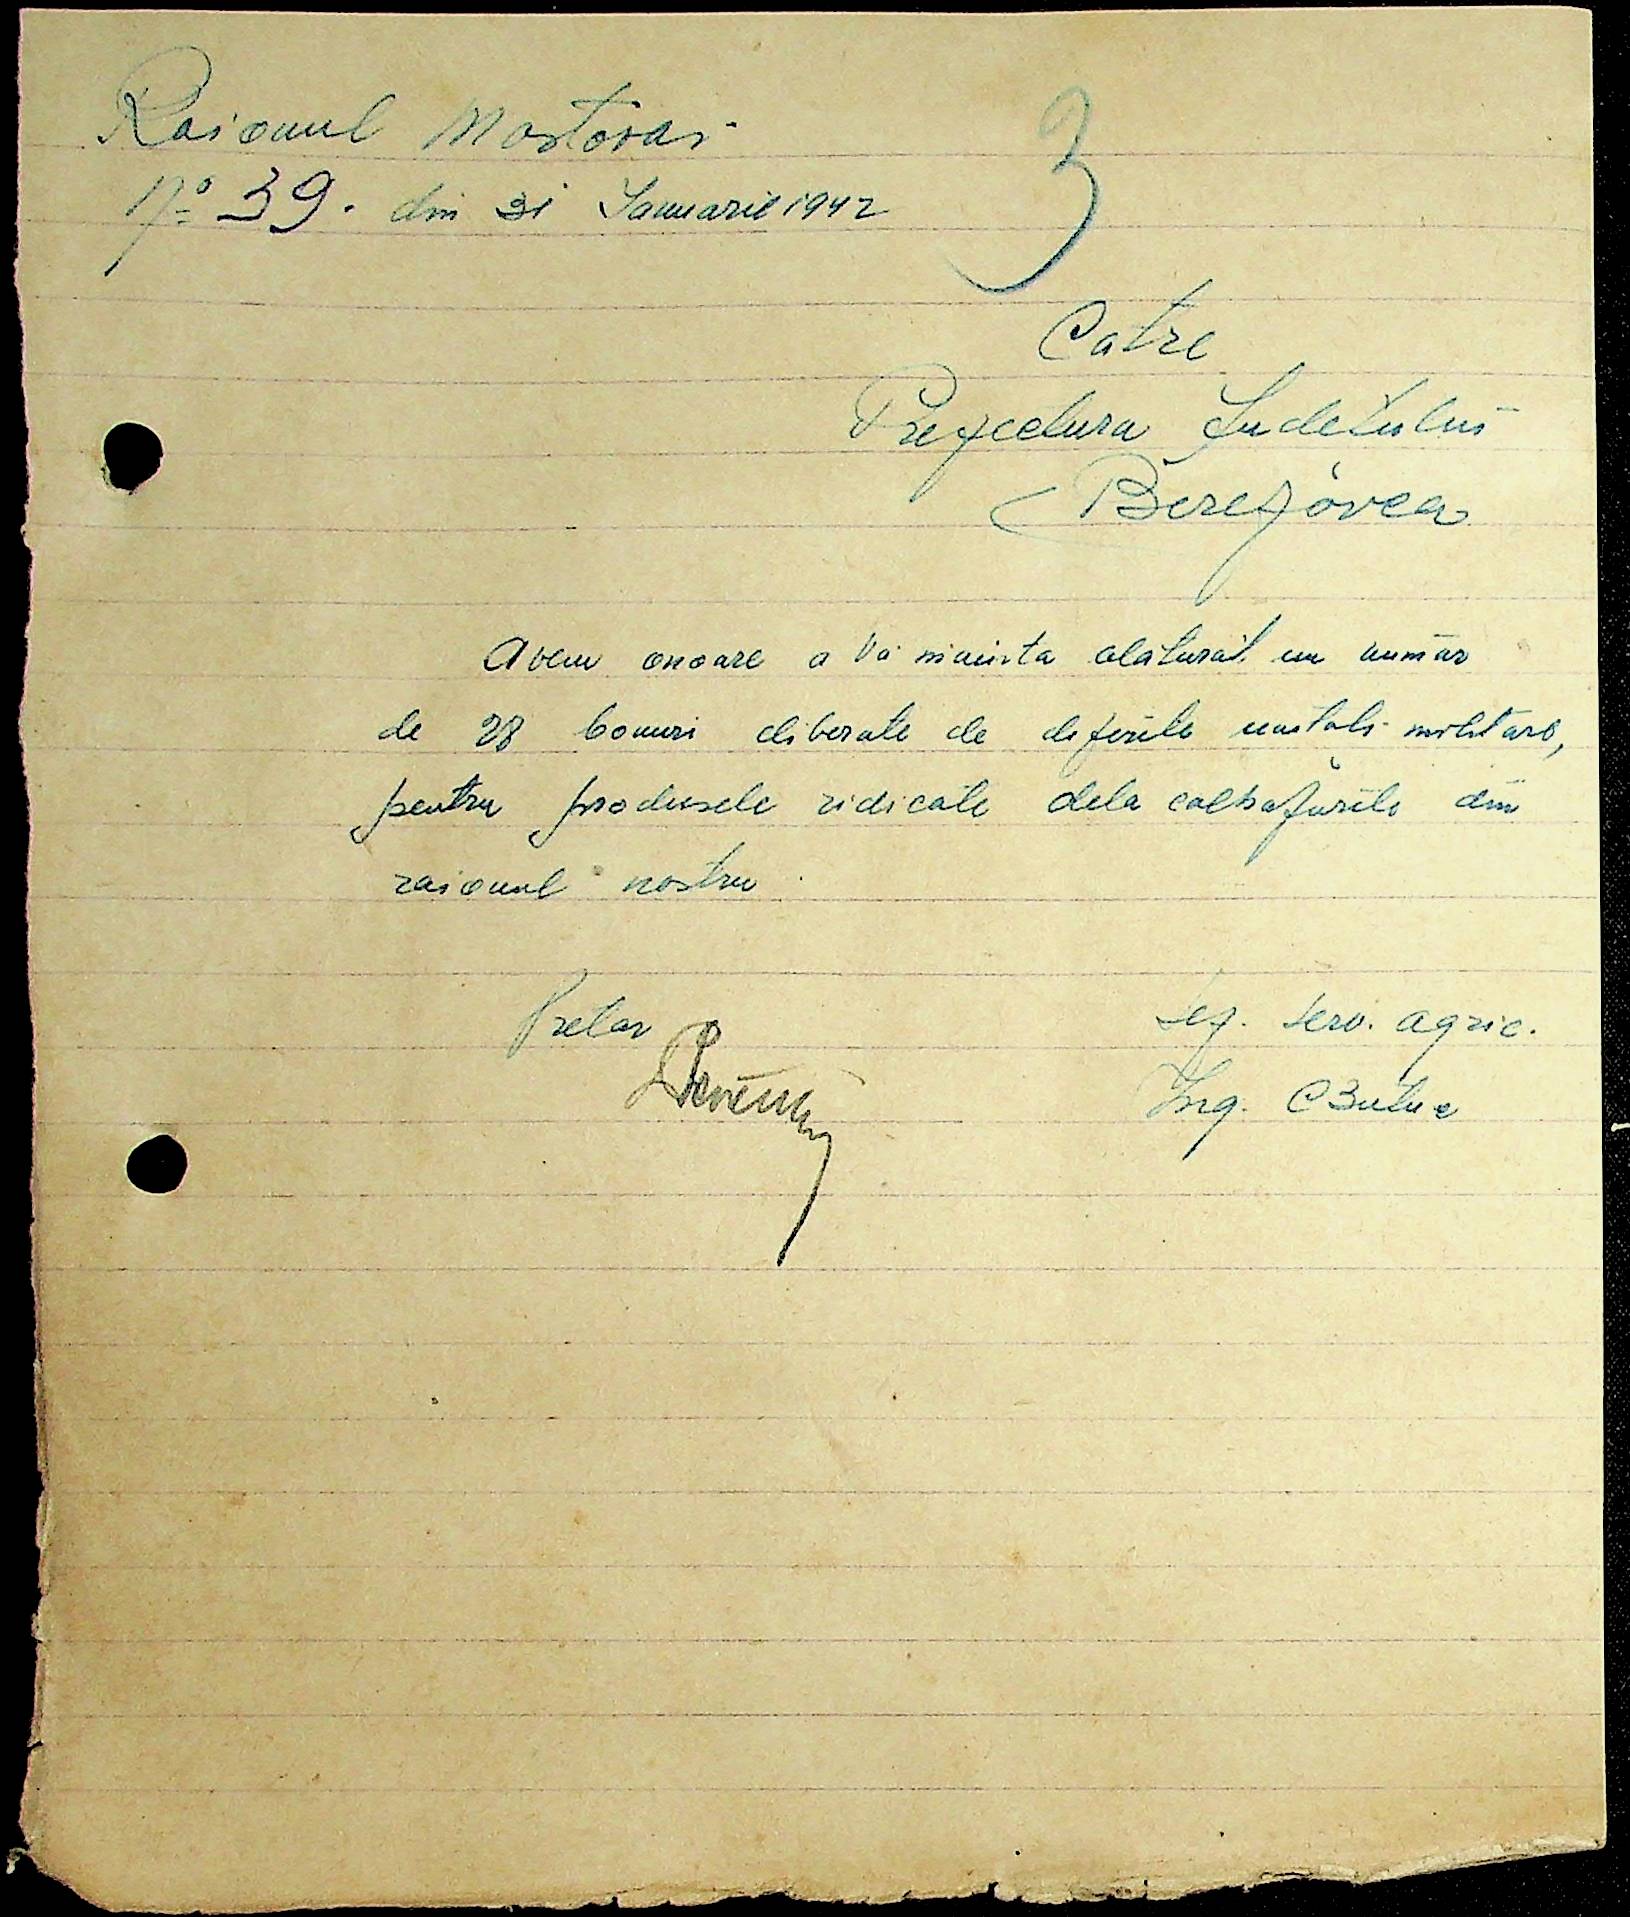 Raionul Mostovai
No 39. din 31 Ianuarie 1942
3
Catre
Prefectura Judetului
Berezovca
Avem onoare a Va nainta alaturat un numar
de 28 bonuri eliberate de diferite unitati militare,
pentru produsele ridicate dela colhozurile din
raionul nostru.
Pretor
Șef. serv. agric.
Ing. C